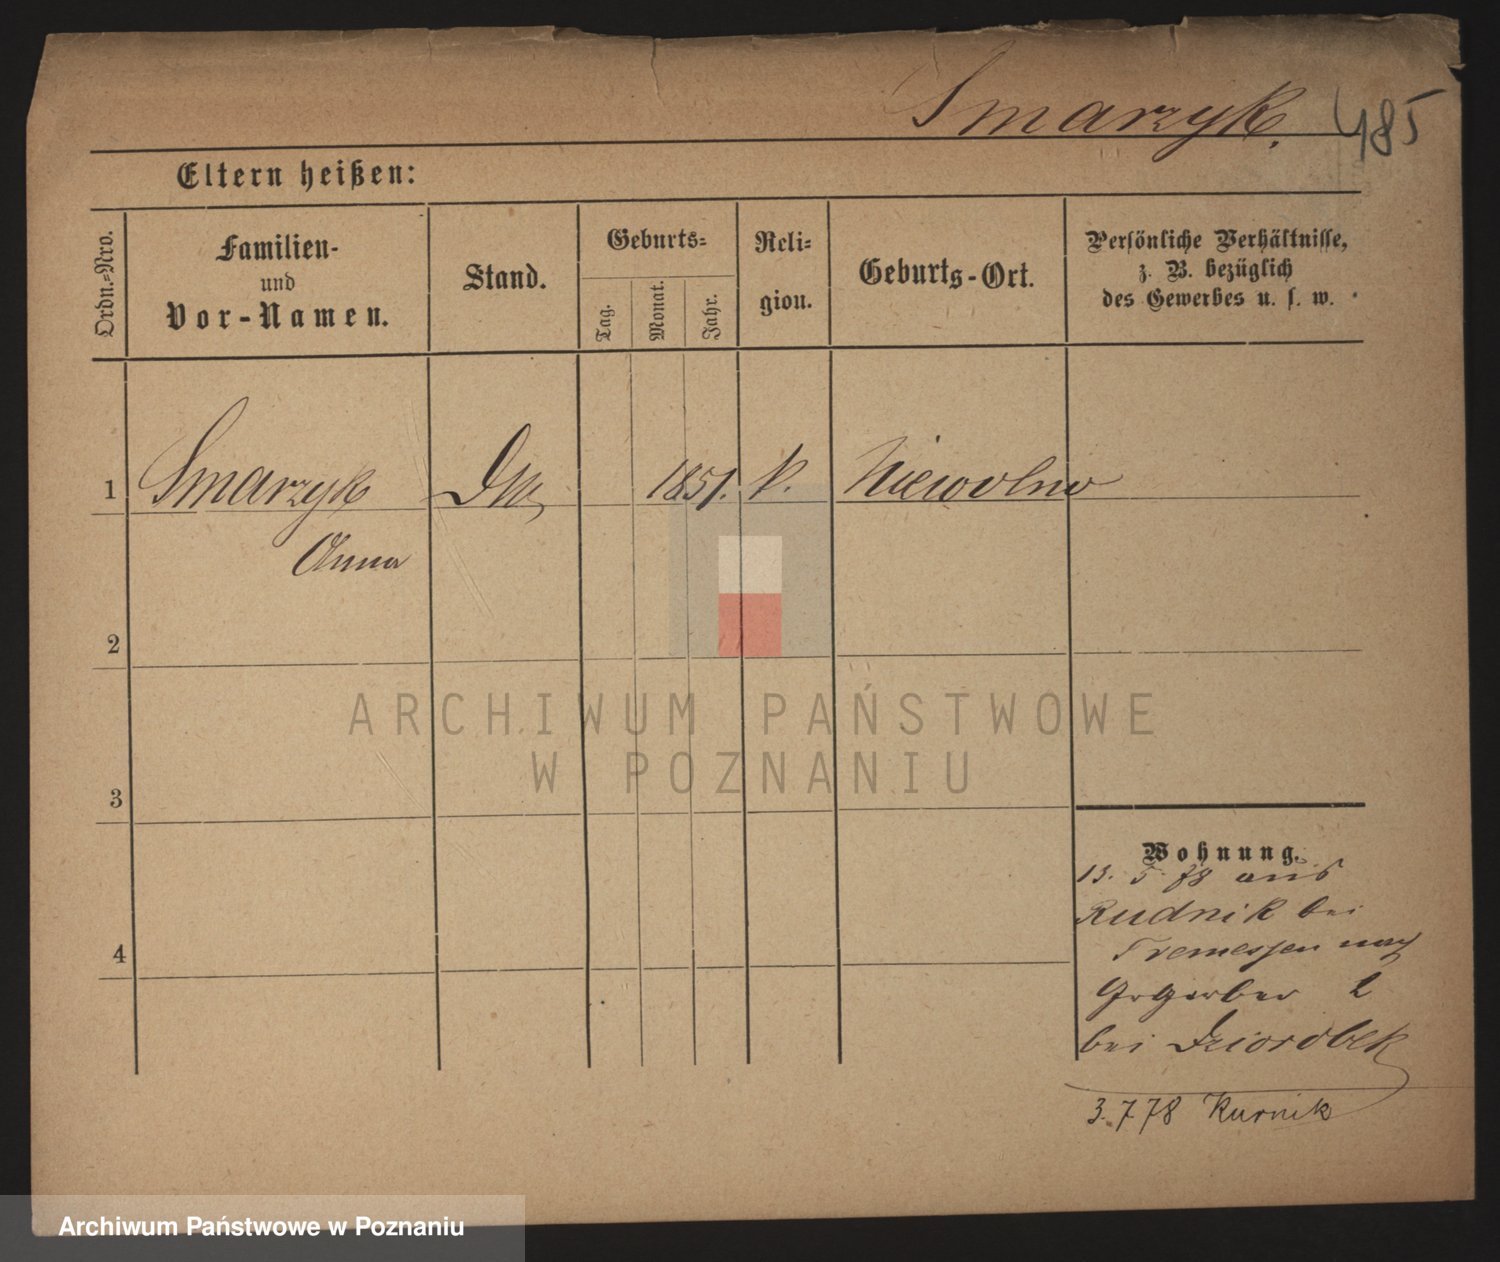 Smarzyk. 485
Eltern heißen:
Ordn.=Nro.
Familien-
und
Vor-Namen.
Stand.
Geburts=
Tag.
Monat.
Jahr.
Reli=
gion.
Geburts-Ort.
Persönliche Verhältnisse,
z. B. bezüglich
des Gewerbes u. s. w.
1 Smarzyk 1851. k. Niewolno
Anna
2
3
4
ARCHIWUM PAŃSTWOWE
W POZNANIU
Wohnung.
13. 5 78 aus
Rudnik bei
Tremessen nach
GrGerber 2
bei
3. 7 78 Kurnik
Archiwum Państwowe w Poznaniu